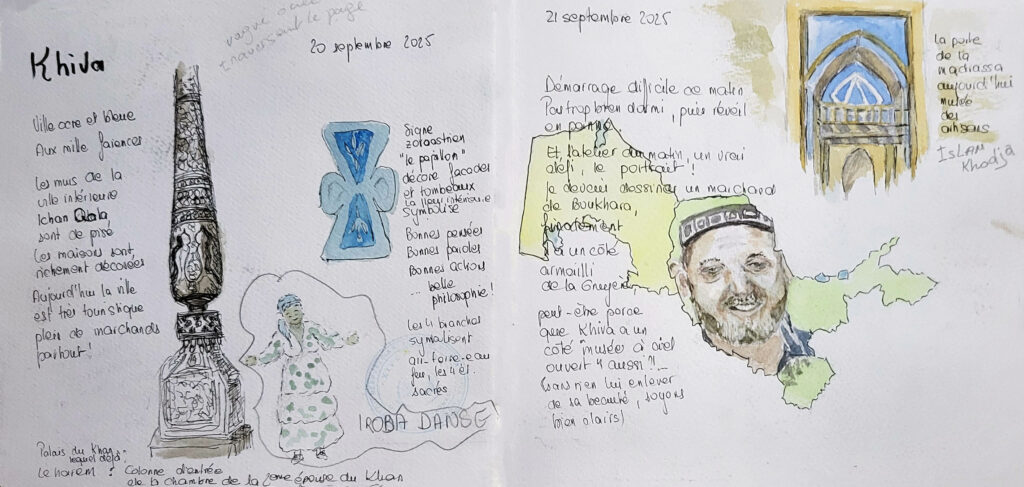 Khiva
vague
traversant le page
20 septembre 2025
Ville ocre et bleue
Aux mille faïences
Les murs de la
ville intérieure
Ichan Qala,
sont de pisé
Les maisons sont
richement décorées
Aujourd'hui la ville
est très touristique
plein de marchands
partout !
Signe
zoroastrien
"le papillon"
décore façades
et tombeaux
symbolise
Bonnes pensées
Bonnes paroles
Bonnes actions
... belle
philosophie !
Les 4 branches
symbolisent
air-terre-eau
feu, les 4 él.
sacrés
IROBA DANSE
Palais du Khan
Le harem : Colonne d'entrée
de la chambre de la 2ème épouse du Khan
21 septembre 2025
Démarrage difficile ce matin
Pas trop bien dormi, puis réveil
en panne
Et, l'atelier du matin, un vrai
défi, le portrait !
Je devais dessiner un marchand
de Boukhara,
finalement
il a un côté
armailli
de la Gruyère,
peut-être parce
que Khiva a un
côté "musée à ciel
ouvert" aussi ?!...
(sans rien lui enlever
de sa beauté, soyons
bien clairs)
la porte
de la
madrassa
aujourd'hui
musée
des
artisans
ISLAM
Khodja